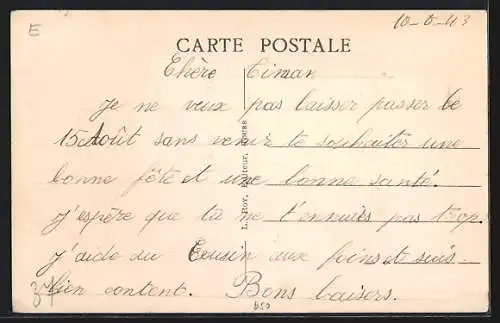 E
10-8-43
CARTE POSTALE
Chère Timan
Je ne veux pas laisser passer le
15 Août sans venir te souhaiter une
bonne fête et une bonne santé.
J'espère que tu ne t'ennuies pas trop.
J'aide du Cousin aux foins et suis
bien content. Bons baisers.